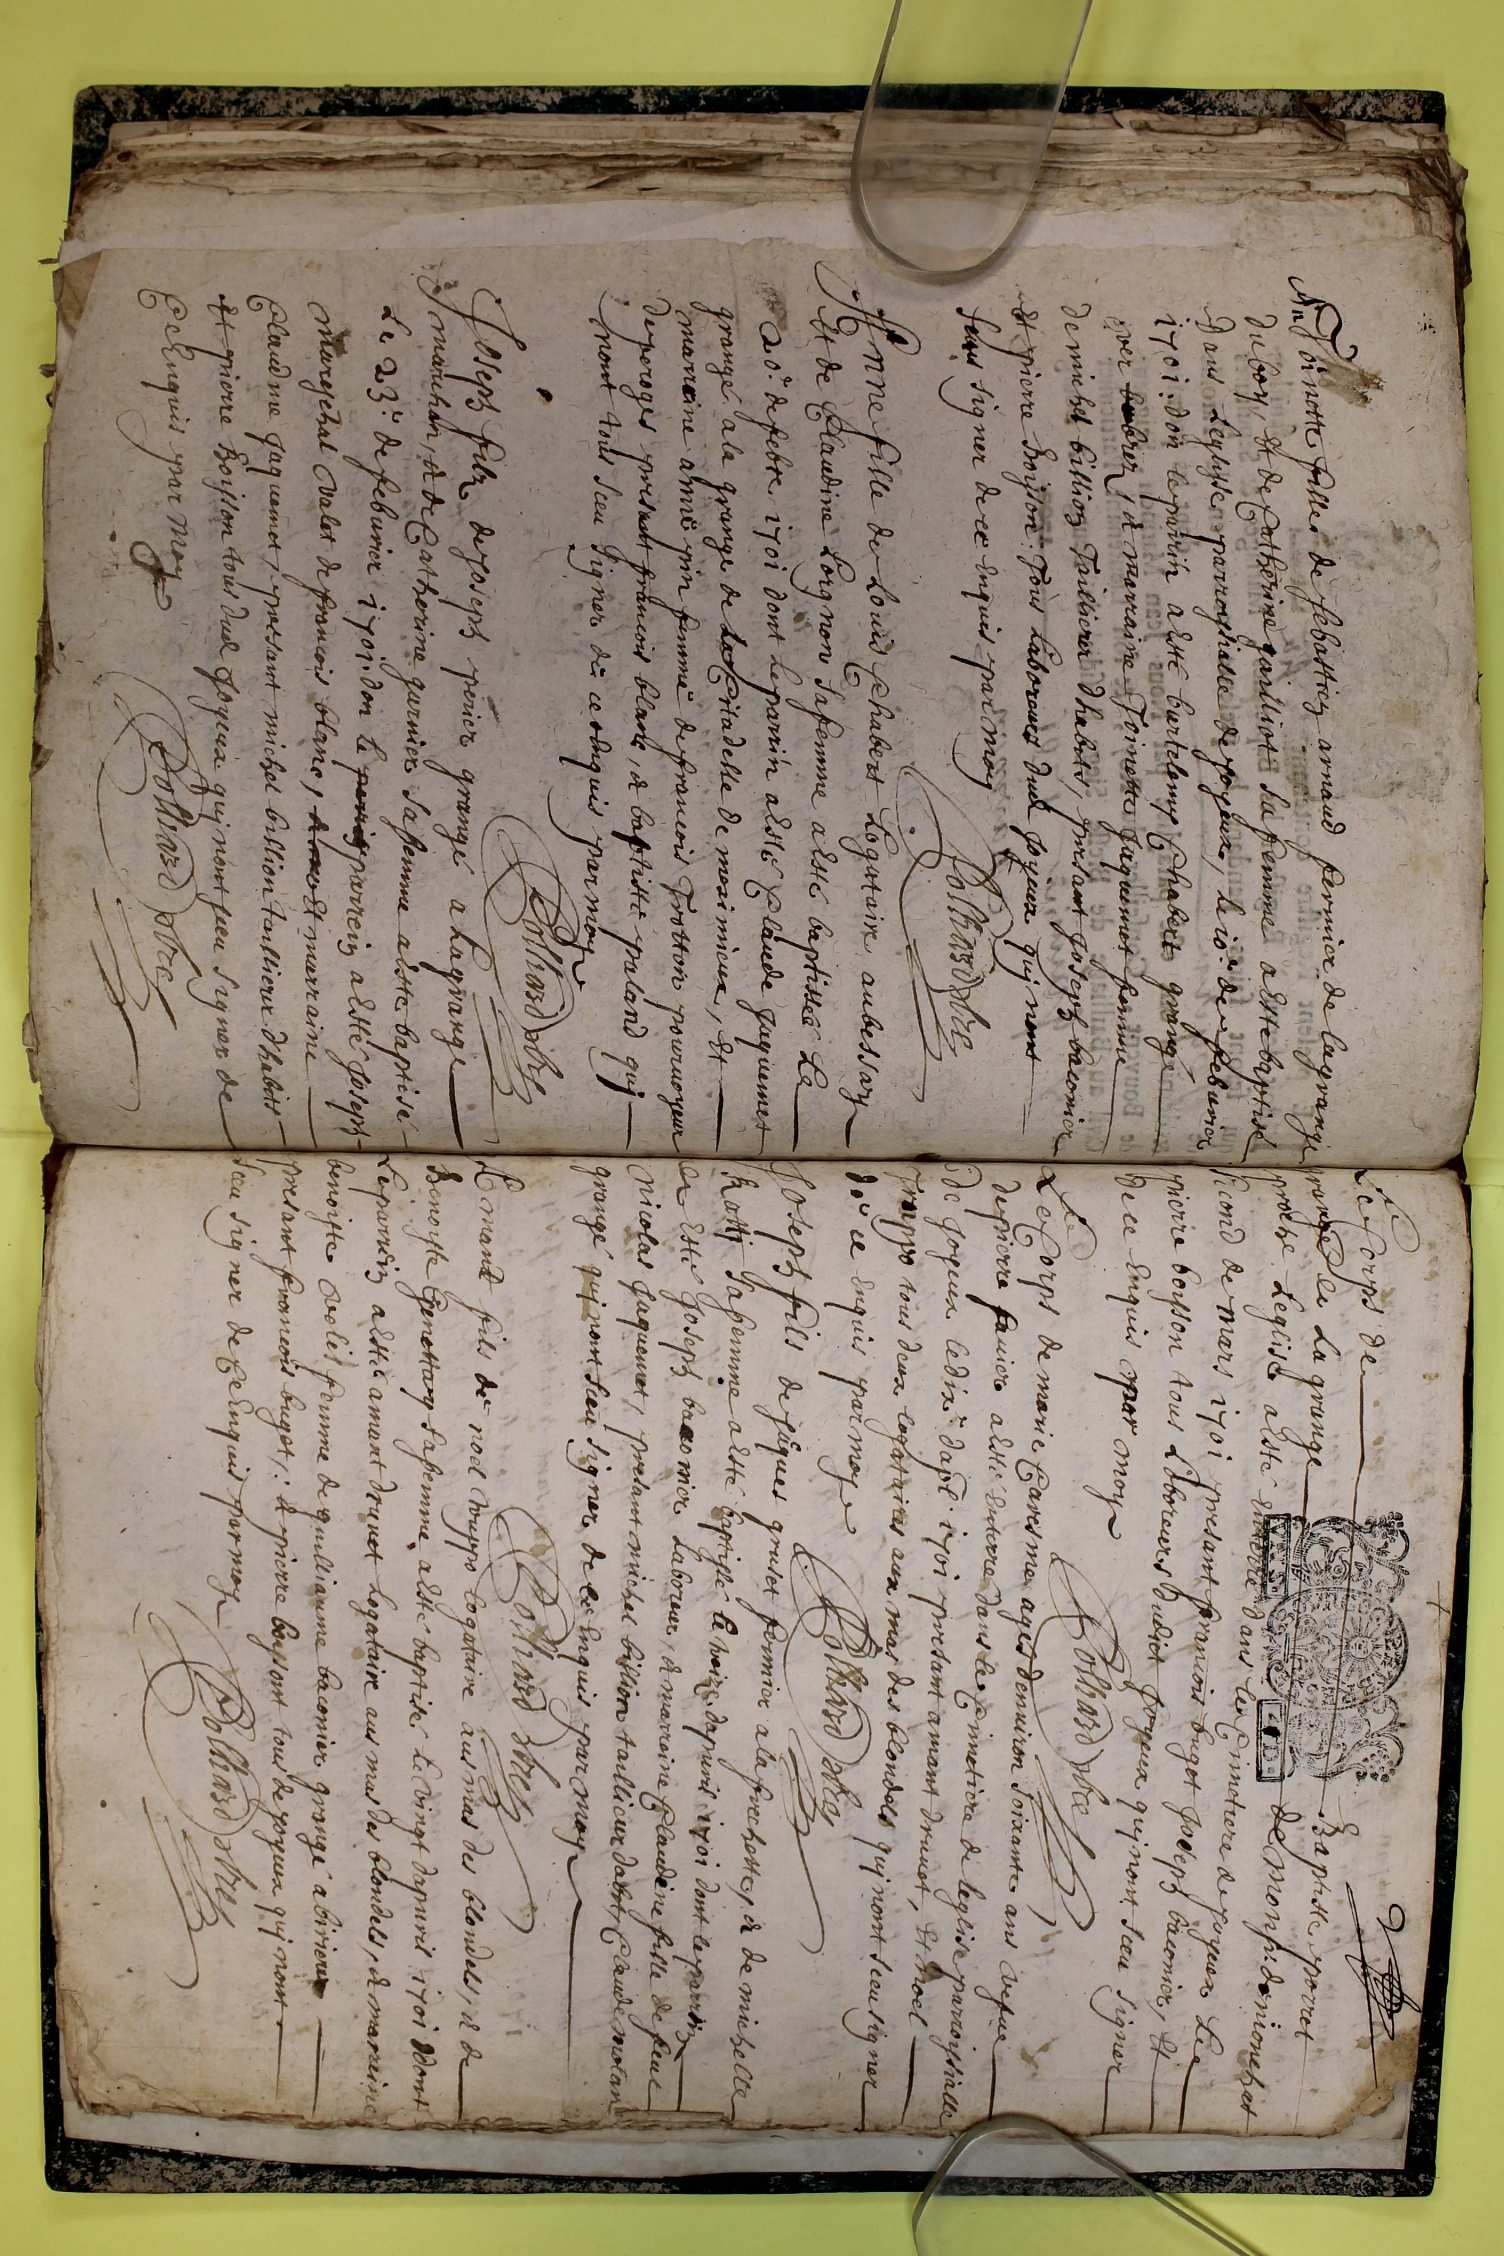 Antoinette fille de Sebastien arnaud fermier de lagrange
du bois, et de Catherine gailliot sa femme a este baptisé
Dans Leglise parroissialle de joyeux, le 10e de febvrier
1701: don le parrin a esté bartelemy Chabert grangé
et marraine Toinette Jaquemet femme
de michel billion Taillieur dhabits, presant Joseph baconier
et pierre boisson Tous Laboreurs dud joyeux quj nont
sceu signer de ce enquis par moy
Rolliard pbre
Anne fille de Louis Chabert Logataire aubessay
et de Claudine Lorgnon sa femme a esté baptissée Le
20e de febre 1701 dont le parrin a esté Claude Jaquemet
grangé a la grange de la Citadelle de meximieux, et
marraine anne pin femme de francois Trotton pourvoyeur
de peroges presant francois blanc, et baptiste paland quj
nont tous sceu signer de ce enquis par moy
Rolliard pbre
Joseph filz de Joseph perier grangé a Lagrange
marechan, et de Catherine garnier sa femme a este baptisé
Le 23e de febvrier 1701: don le parrein a esté Joseph
mareschal valet de francois blanc, et marraine
Claudine Jaquemet, presant michel billion taillieur dhabits
et pierre boisson tous dud Joyeux quj nont sceu signer de
Ce Enquis par moy
Rolliard pbre
Le Corps de Baptiste porret
grangé de La grange de monsr denionchet
proche Leglise a esté enterré dans le Cimetiere de joyeux Le
second de mars 1701 presant francois buget Joseph baconier, et
pierre boisson tous Laboreurs dudict joyeux quj nont sceu signer
de ce Enquis par moy
Rolliard pbre
Le Corps de marie Caresme agee denviron soixante ans vefue
de pierre favier a esté enterre dans le Cimetiere de leglise parroissialle
de joyeux le dixe dapl 1701 presant amant druvet, et noel
trappo tous deux logataires aux mas des blondels quj nont sceu signer
de ce enquis par moy
Rolliard pbre
Joseph fils de Jâques gruset fermier a la fuchette, et de michelle
ratti sa femme a esté baptissé le treize dapvril 1701 dont le parrin
a esté Joseph baconier Laboreur, et marraine Claudine fille de feut
nicolas Jaquemet, presant michel billion taillieur dabit, Claude nolan
grangé quj nont sceu signer de ce Enquis par moy
Rolliard pbre
Emant fils de noel trappo logataire aus mas des blondels, et de
Benoyste Genettay sa femme a este baptisé le vingt dapvril 1701 dont
Le parrin a esté amant druvet Logataire aus mas des blondels, et marreine
benoiste volet femme de guilliaume baconier grangé a birieux
presant francois buget: et pierre boisson tous de joyeux quj nont
sceu signer de Ce Enquis par moy
Rolliard pbre